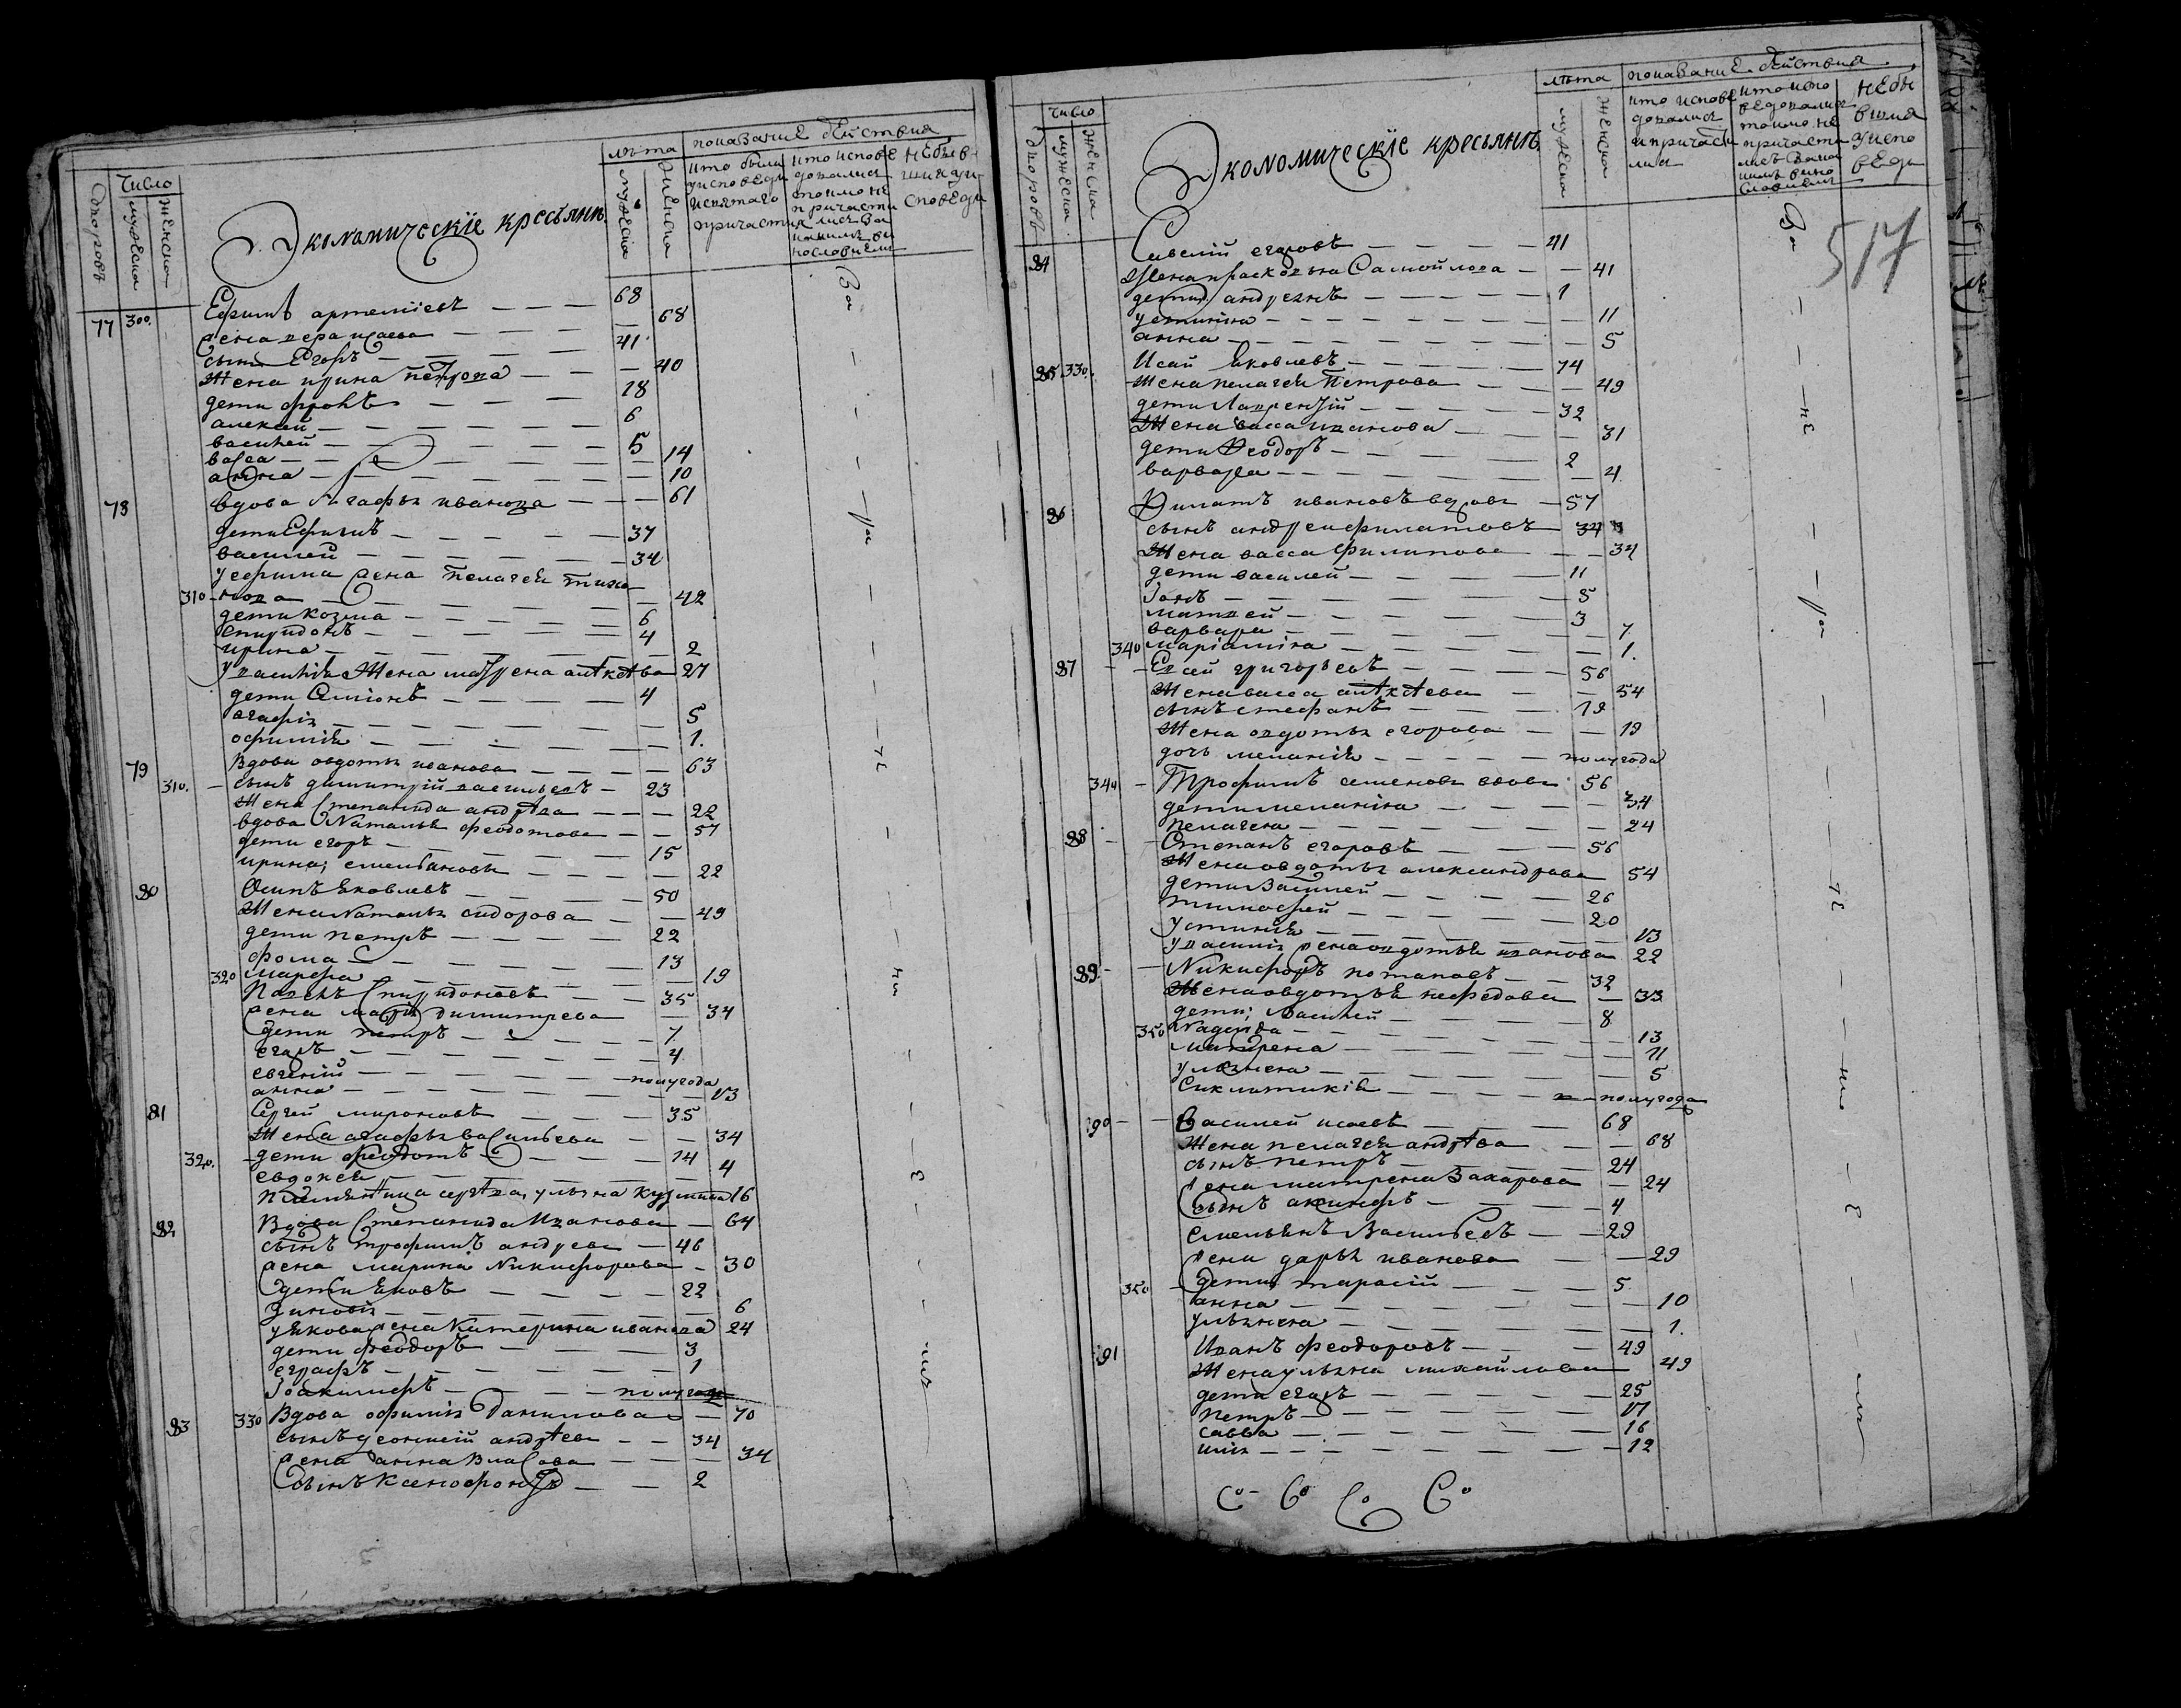 Число
дворовъ
мужеска
женска
Экономическїе крестьяне
лѣта
мужеска
женска
показание действия
кто были
у исповеди
и святаго
причастия
кто испове
довался
токмо не
причасти
лись за
какимъ ви
нословиемъ
не быв
шия у и
споведи
77 300. Ефимъ артемїевъ 68
жена вера исаева 68
сынъ Егоръ 41
жена ирина петрова 40
дети фролъ 18
алексей 6
василей 5
васса 14
анна 10
78 вдова Агафья иванова 61
дети Ефимъ 37
василей 34
у ефима жена пелагея тихо
310 нова 42
дети козма 6
спиридонъ 4
ирина 2
у василья жена матрена алѣксѣва 27
дети Симїонъ 4
агафія 5
офимия 1.
79 Вдова авдотья иванова 63
310. сынъ димитрїй васильевъ 23
жена Степанида андрѣва 22
вдова Наталья феодотова 57
дети егоръ 15
ирина; емельяновы 22
80 Осипъ яковлевъ 50
жена Наталья сидорова 49
дети петръ 22
фома 13
320 марфа 19
Павелъ Спиридоновъ 35
жена марія димитрева 34
дети петръ 7
егоръ 4
евгений полугода
анна 13
81 Сергей мироновъ 35
жена агафья васильева 34
320. дети феодотъ 14
евдокея 4
племянница сергѣва, ульяна кузмина 16
82 Вдова Степанида Иванова 64
сынъ трофимъ андреевъ 46
жена марина Никифорова 30
дети яковъ 22
зиновія 6
у якова жена катерина иванова 24
дети феодоръ 3
еграфъ 1
полугода
83 330 Вдова офимія Данилова 70
сынъ деонисїй андрѣевъ 34
жена анна Власова 34
сынъ Ксенофонтъ 2
Число
дворовъ
мужеска
женска
Экономическїе кресьянѣ
лѣта
мужеска
женска
показание действия
кто испове
довался
и причасти
лися
кто испо
ведовался
токмо не
причасти
лись за ка
кимъ вино
словиемъ
не бы
вшия
у испо
веди
517
84 Савелій егоровъ 41
Жена прасковья Самойлова 41
дети андреянъ 1
устиния 11
анна 5
85 330. Исай яковлевъ 74
жена пелагея петрова 49
дети Лаврентїй 32
жена васса иванова 31
дети Феодоръ 2
варвара 4
86 Филатъ ивановъ вдовъ 57
сынъ андрей филатовъ 34
жена васса филипова 34
дети василей 11
Іонъ 5
матвей 3
варвара 7
340 маріамна 1.
87 Елсей григорьевъ 56
жена васса алѣксѣева 54
сынъ стефанъ 19
жена авдотья егорова 19
дочь мелания полугода
340 Трофимъ семеновъ вдовъ 56
дети мелания 34
пелагея 24
88 Степанъ егоровъ 56
жена овдотья александрова 54
дети Василей 26
тимофей 20
устиния 13
у василия жена овдотья иванова 22
89. Никифоръ потаповъ 32
жена овдотья нефедова 33
дети; Василей 8
350 Надежда 13
матрена 11
ульяна 5
Сиклитикия полугода
90 Василей исаевъ 68
жена пелагея андрѣва 68
сынъ петръ 24
жена матрена Захарова 24
сынъ акинфъ 4
емельянъ Васильевъ 29
жена дарья иванова 29
350 дети тарасїй 5
анна 10
ульяна 1.
91 Иванъ феодоровъ 49
жена ульяна михайлова 49
дети егоръ 25
петръ 17
савва 16
илия 12